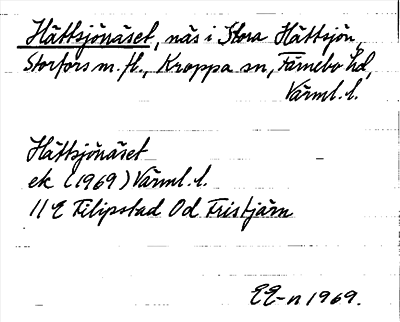 Hättsjönäset, näs i Stora Hättsjön,
Storfors m. fl., Kroppa sn, Färnebo hd,
Värml. l.
Hättsjönäset
ek (1969) Värml. l.
11 E Filipstad 0d Fristjärn
EE-n 1969.